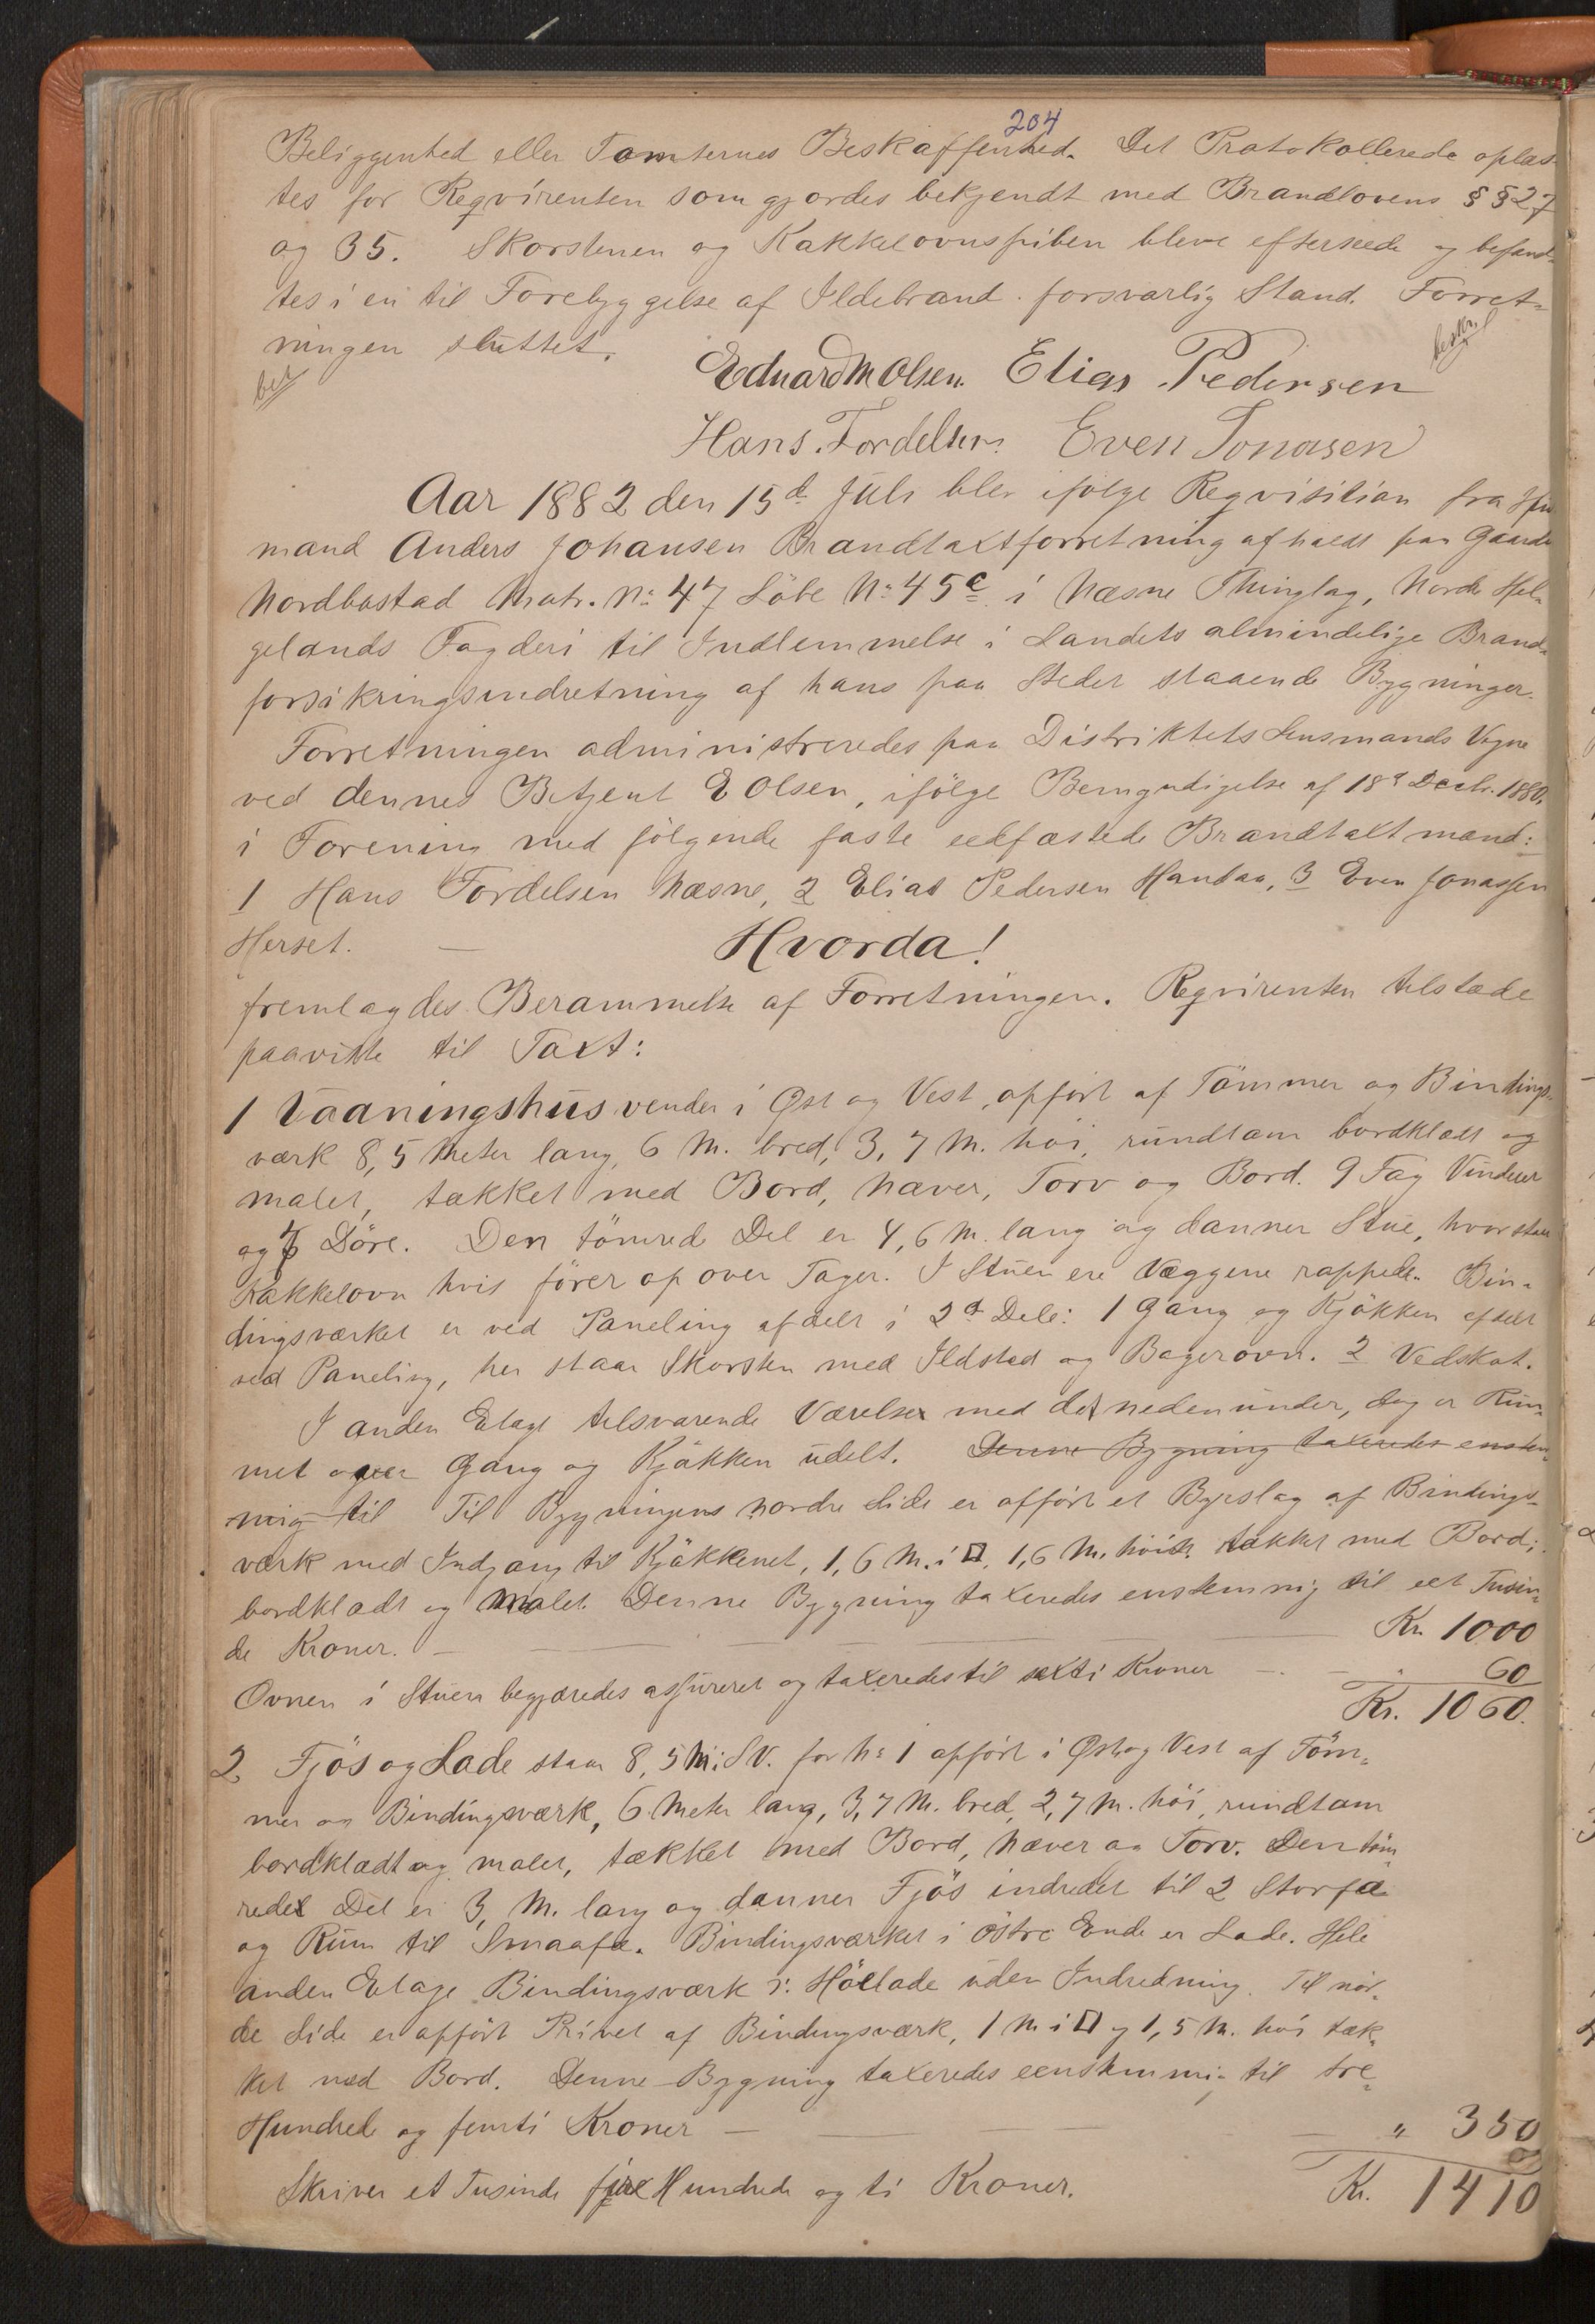 204
Beliggenhed eller Tomternes Beskaffenhed. Det Protokollerede oplæs-
tes for Reqvirenten som gjordes bekjendt med Brandlovens §§ 27
og 35. Skorstenen og Kakkelovnspiben bleve efterseede og befand-
tes i en til Forebyggelse af Ildebrand forsvarlig Stand. Forret-
ningen sluttet.
Eduard M Olsen. Elias Pedersen
Hans Tordelsen Even Jonasen
Aar 1882 den 15d Juli blev ifølge Reqvisition fra Hus-
mand Anders Johansen Brandtaxtforretning afholdt paa Gaarden
Nordbostad Matr. No 47 Löbe No 45c i Næsne Thinglag, Nordre Hel-
gelands Fogderi til Indlemmelse i Landets almindelige Brand-
forsikringsindretning af hans paa Stedet staaende Bygninger.
Forretningen administreredes paa Distriktets Lensmands Vegne
ved dennes Betjent E Olsen, ifölge Bemyndigelse af 18d Decbr. 1880,
i Forening med fölgende faste eedfæstede Brandtaxtmænd:
1 Hans Tordelsen Næsne, 2 Elias Pedersen Handaa, 3 Even Jonassen
Herset. — Hvorda!
fremlagdes Berammelse af Forretningen. Reqvirenten tilstæde
paaviste til Taxt:
1 Vaaningshus vender i Øst og Vest, opfört af Tömmer og Bindings-
værk 8,5 Meter lang, 6 M. bred, 3,7 M. höi, rundtom bordklædt og
malet, tækket med Bord, Næver, Torv og Bord. 9 Fag Vinduer
og 7 Döre. Den tömrede Del er 4,6 M. lang og danner Stue, hvor staar
Kakkelovn hvis förer op over Taget. I Stuen ere Væggene rappede. Bin-
dingsværket er ved Paneling afdelt i 2de Dele: 1 Gang og Kjökken afdelt
ved Paneling, her staar Skorsten med Ildsted og Bagerovn. 2 Vedskot.
I anden Etage tilsvarende Værelser med det nedenunder, dog er Rum-
met over Gang og Kjökken udelt. Denne Bygning taxeredes enstem-
mig til Til Bygningens nordre Side er opfört et Bypslag af Bindings-
værk med Indgang til Kjökkenet, 1,6 M. i □, 1,6 M. höit tækket med Bord,
bordklædt og malet. Denne Bygning taxeredes enstemmig til eet Tusin-
de Kroner. — Kr. 1000
Ovnen i Stuen begjæredes assureret og taxeredes til sexti Kroner — 60
Kr. 1060.
2 Fjös og Lade staar 8,5 M. i SV. for No 1 opfört i Øst og Vest af Töm-
mer og Bindingsværk, 6 Meter lang, 3,7 M. bred, 2,7 M. höi, rundtom
bordklædt og malet, tækket med Bord, Næver og Torv. Den töm-
rede Del er 3, M. lang og danner Fjös indredet til 2 Storfæ
og Rum til Smaafæ. Bindingsværket i östre Ende er Lade. Hele
anden Etage Bindingsværk i: Hölade uden Indredning. Til nor-
de Side er opfört Privet af Bindingsværk, 1 M i □ og 1,5 M. höi tæk-
ket med Bord. Denne Bygning taxeredes eenstemmig til tre
Hundrede og femti Kroner — " 350
Skriver et Tusinde fire Hundrede og ti Kroner. Kr. 1410